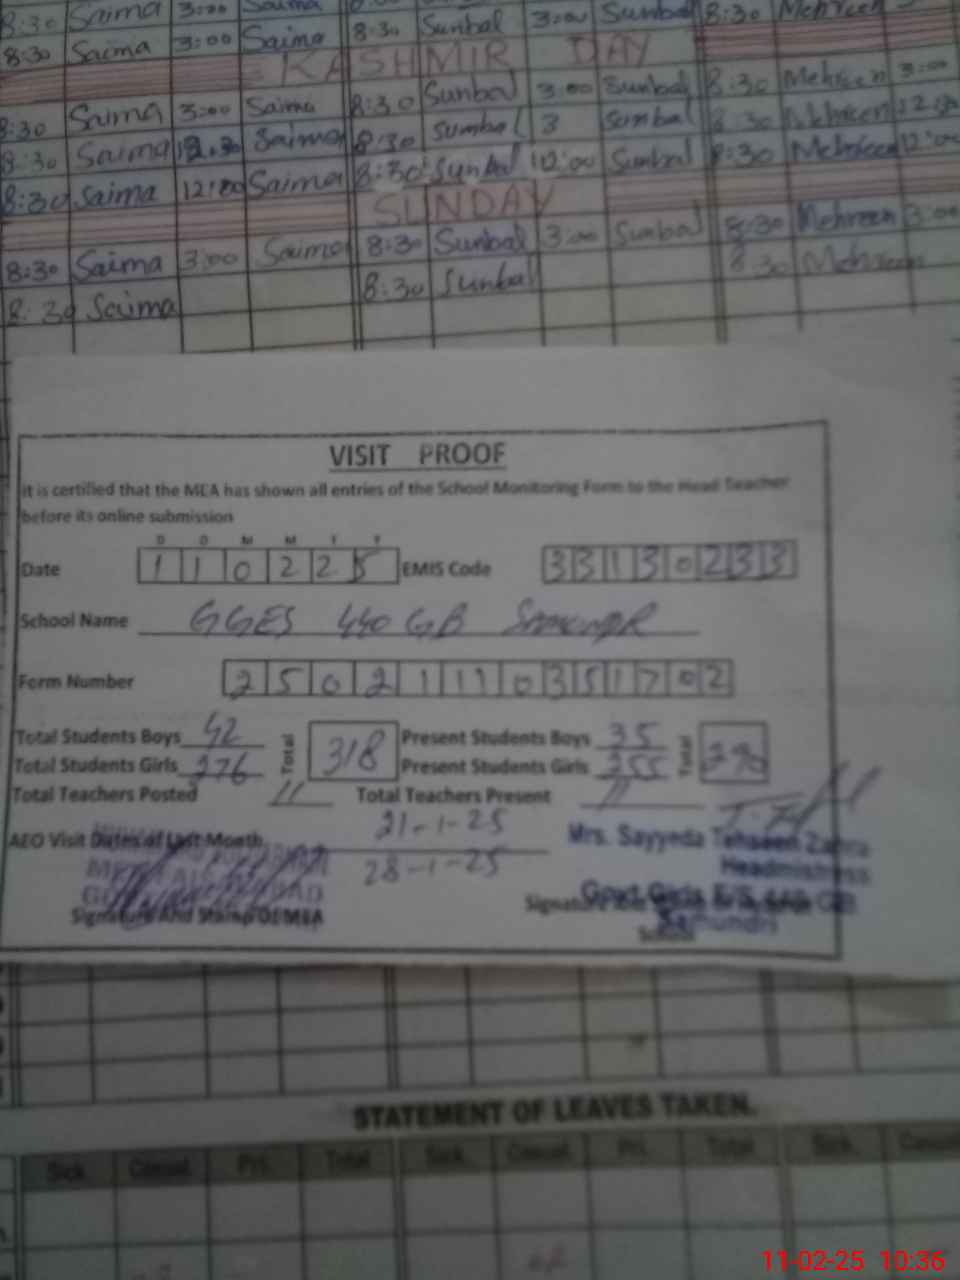 8:30 Saima 3:00 Saima Sunbal 3:00 Sunbal 8:30 Mehreen
8:30 Saima 3:00 Saima 8:30 Sunbal
KASHMIR DAY
8:30 Saima 3:00 Saima 8:30 Sunbal 3:00 Sunbal 8:30 Mehreen 3:00
8:30 Saima 12:30 Saima 8:30 Sumbal 3 Sumbal 8:30 Mehreen 12:30
8:30 Saima 12:00 Saima 8:30 Sunbal 12:00 Sunbal 8:30 Mehreen 12:00
SUNDAY
8:30 Saima 3:00 Saima 8:30 Sunbal 3:00 Sunbal 8:30 Mehreen 3:00
8:30 Saima 8:30 Sunbal 8:30 Mehreen
VISIT PROOF
It is certified that the MEA has shown all entries of the School Monitoring Form to the Head Teacher
before its online submission
D D M M Y Y
Date 1 1 0 2 2 5 EMIS Code 3 3 1 3 0 2 3 3
School Name GGES 440 GB
Form Number 2 5 0 2 1 1 1 1 0 3 5 1 7 0 2
Total Students Boys 42 Total 318 Present Students Boys 35 Total 290
Total Students Girls 276 Present Students Girls 255
Total Teachers Posted 11 Total Teachers Present 11
AEO Visit Dates of Last Month 21-1-25
28-1-25
Mrs. Sayyeda Tehseen Zahra
Headmistress
Govt Girls E/S 440 GB
Samundri
Signature And Stamp Of MEA
School
STATEMENT OF LEAVES TAKEN.
Sick Casual Pri. Total Sick Casual Pri. Total Sick Casual
11-02-25 10:36